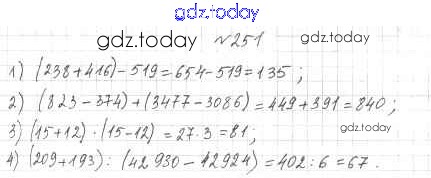 gdz.today
gdz.today №251 gdz.today
1) (238+416)-519=654-519=135;
2) (823-374)+(3477-3086)=449+391=840;
3) (15+12)·(15-12)=27·3=81; gdz.today
4) (209+193):(42930-42924)=402:6=67.